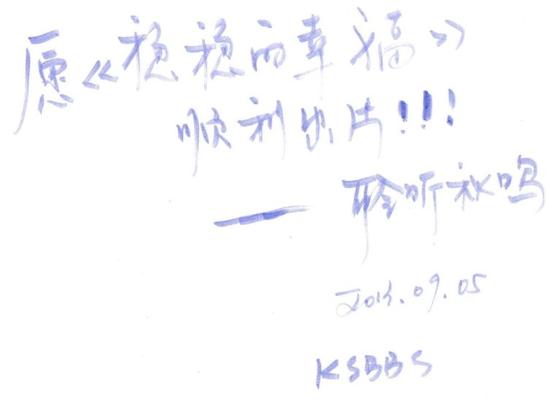 愿《稳稳的幸福》
顺利出片!!!
—— 聆听秋鸣
09.05
KSBBS